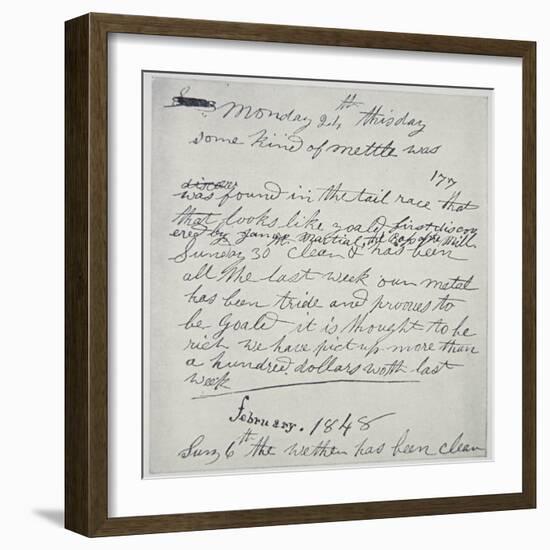 Monday 24th this day
some kind of mettle was
177
was found in the tail race that
that looks like goald first discov
ered by James Martial, the Boss of the Mill
Sunday 30 clean & has been
all the last week our metal
has been tride and prooves to
be goald it is thought to be
rich we have pict up more than
a hundred dollars woth last
week
February. 1848
Sun 6th the wether has been clean